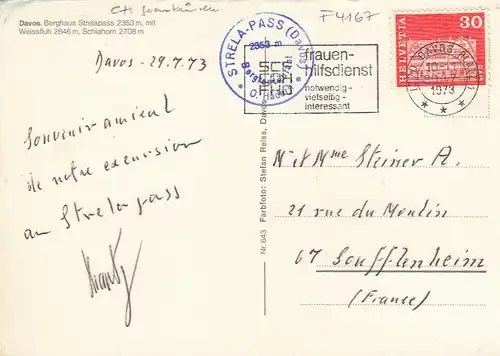 CH Graubünden
F4167
Davos. Berghaus Strelapass 2353 m, mit
Weissfluh 2846 m, Schiahorn 2708 m
STRELA-PASS (Davos)
2353 m
Berghaus
frauen-
hilfsdienst
notwendig-
vielseitig-
interessant
HELVETIA
30
DAVOS
1973
Davos - 29.7.73
Souvenir amical
de notre excursion
au Strelapass
Nr. 643 Farbfoto: Stefan Reiss, Davos
M et Mme Steiner A.
21 rue du Moulin
67 Soufflenheim
(France)